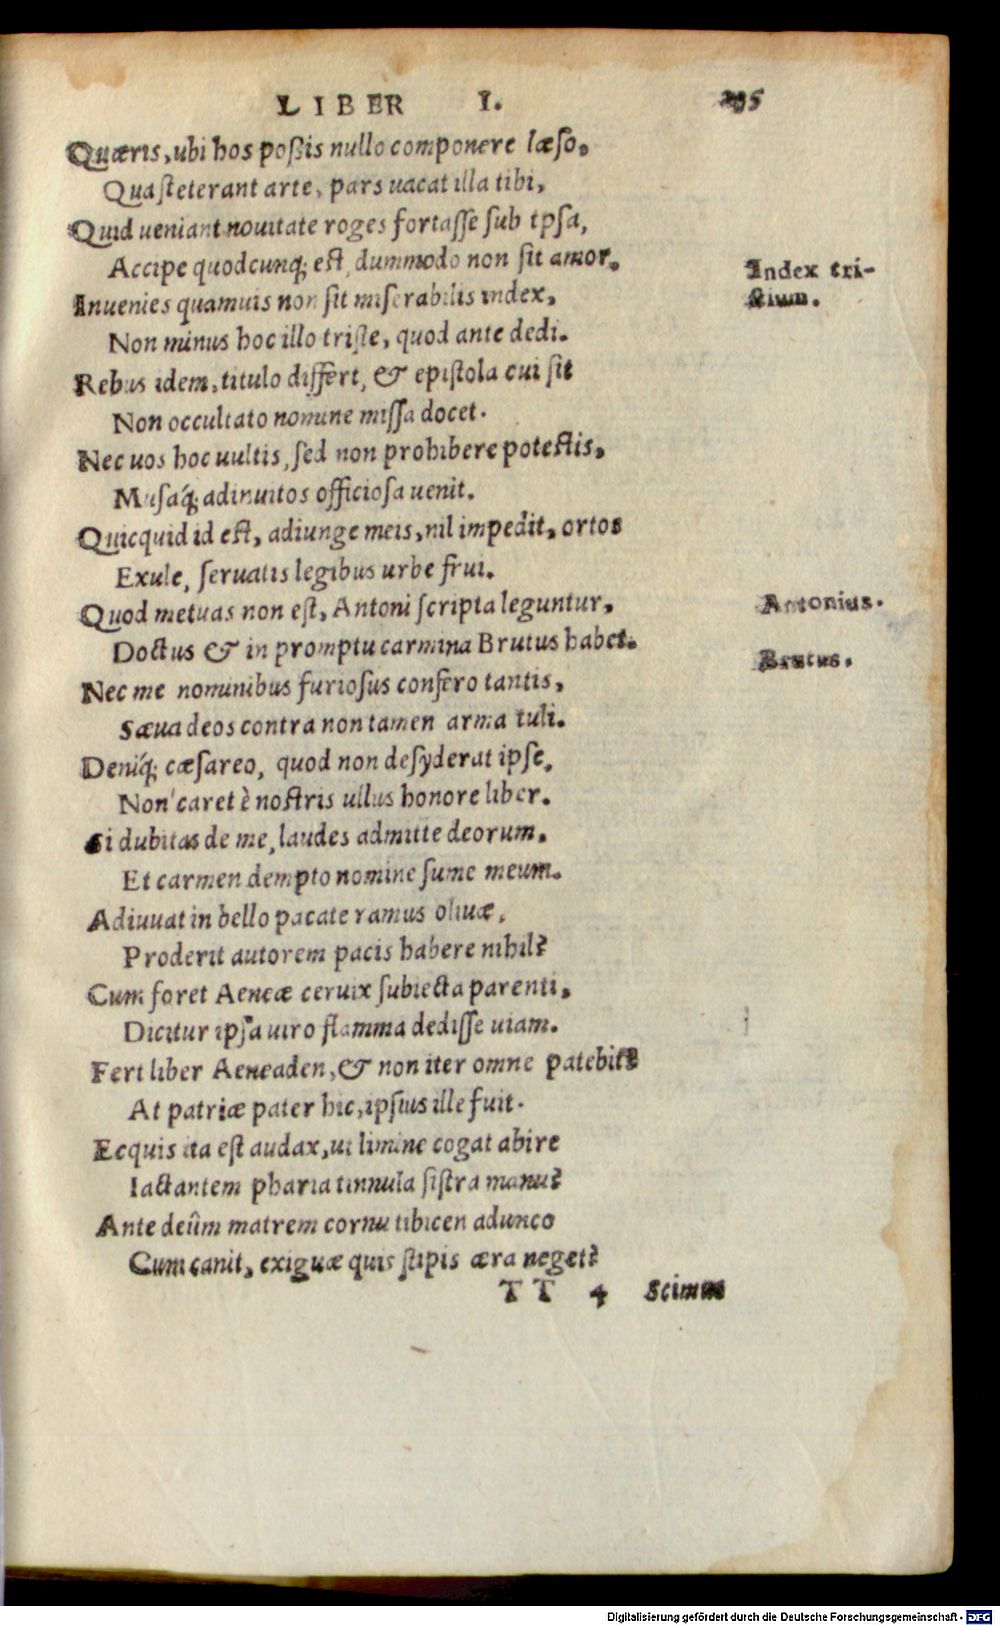 LIBER I. 295
Quæris, ubi hos poßis nullo componere læso,
Qua steterant arte, pars uacat illa tibi,
Quid ueniant nouitate roges fortasse sub ipsa,
Accipe quodcunq; est, dummodo non sit amor.
Index tri-
stium.
Inuenies quamuis non sit miserabilis index,
Non minus hoc illo triste, quod ante dedi.
Rebus idem, titulo differt, & epistola cui sit
Non occultato nomine missa docet.
Nec uos hoc uultis, sed non prohibere potestis,
Musaq́; ad inuitos officiosa uenit.
Quicquid id est, adiunge meis, nil impedit, ortos
Exule, seruatis legibus urbe frui.
Quod metuas non est, Antoni scripta leguntur,
Antonius.
Doctus & in promptu carmina Brutus habet.
Brutus.
Nec me nominibus furiosus confero tantis,
Sæua deos contra non tamen arma tuli.
Deniq́; cæsareo, quod non desyderat ipse,
Non caret è nostris ullus honore liber.
Si dubitas de me, laudes admitte deorum.
Et carmen dempto nomine sume meum.
Adiuuat in bello pacate ramus oliuæ,
Proderit autorem pacis habere nihil?
Cum foret Aeneæ ceruix subiecta parenti,
Dicitur ipsa uiro flamma dedisse uiam.
Fert liber Aeneaden, & non iter omne patebit?
At patriæ pater hic, ipsius ille fuit.
Ecquis ita est audax, ut limine cogat abire
Iactantem pharia tinnula sistra manu?
Ante deûm matrem cornu tibicen adunco
Cum canit, exiguæ quis stipis æra neget?
TT 4 Scimus
Digitalisierung gefördert durch die Deutsche Forschungsgemeinschaft - DFG